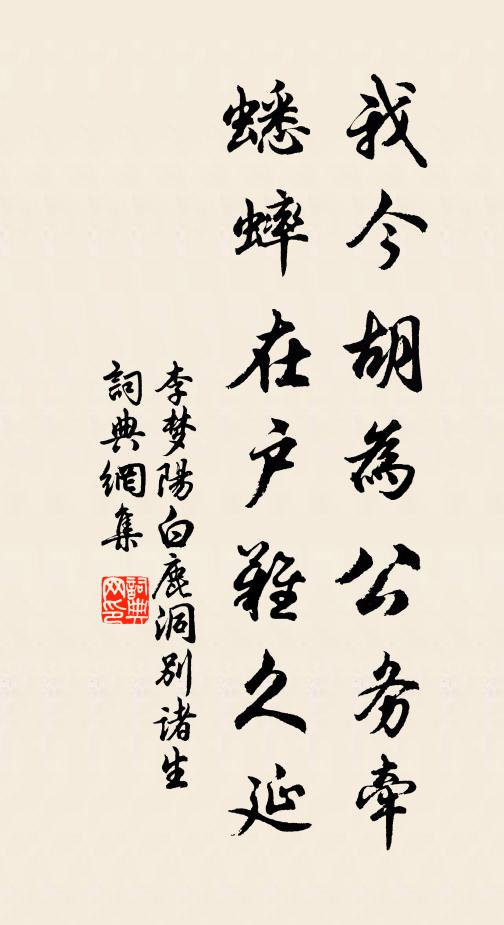 我今胡為公务牽
蟋蟀在户難久延
李梦陽白鹿洞别诸生
詞典網集
詞典网印